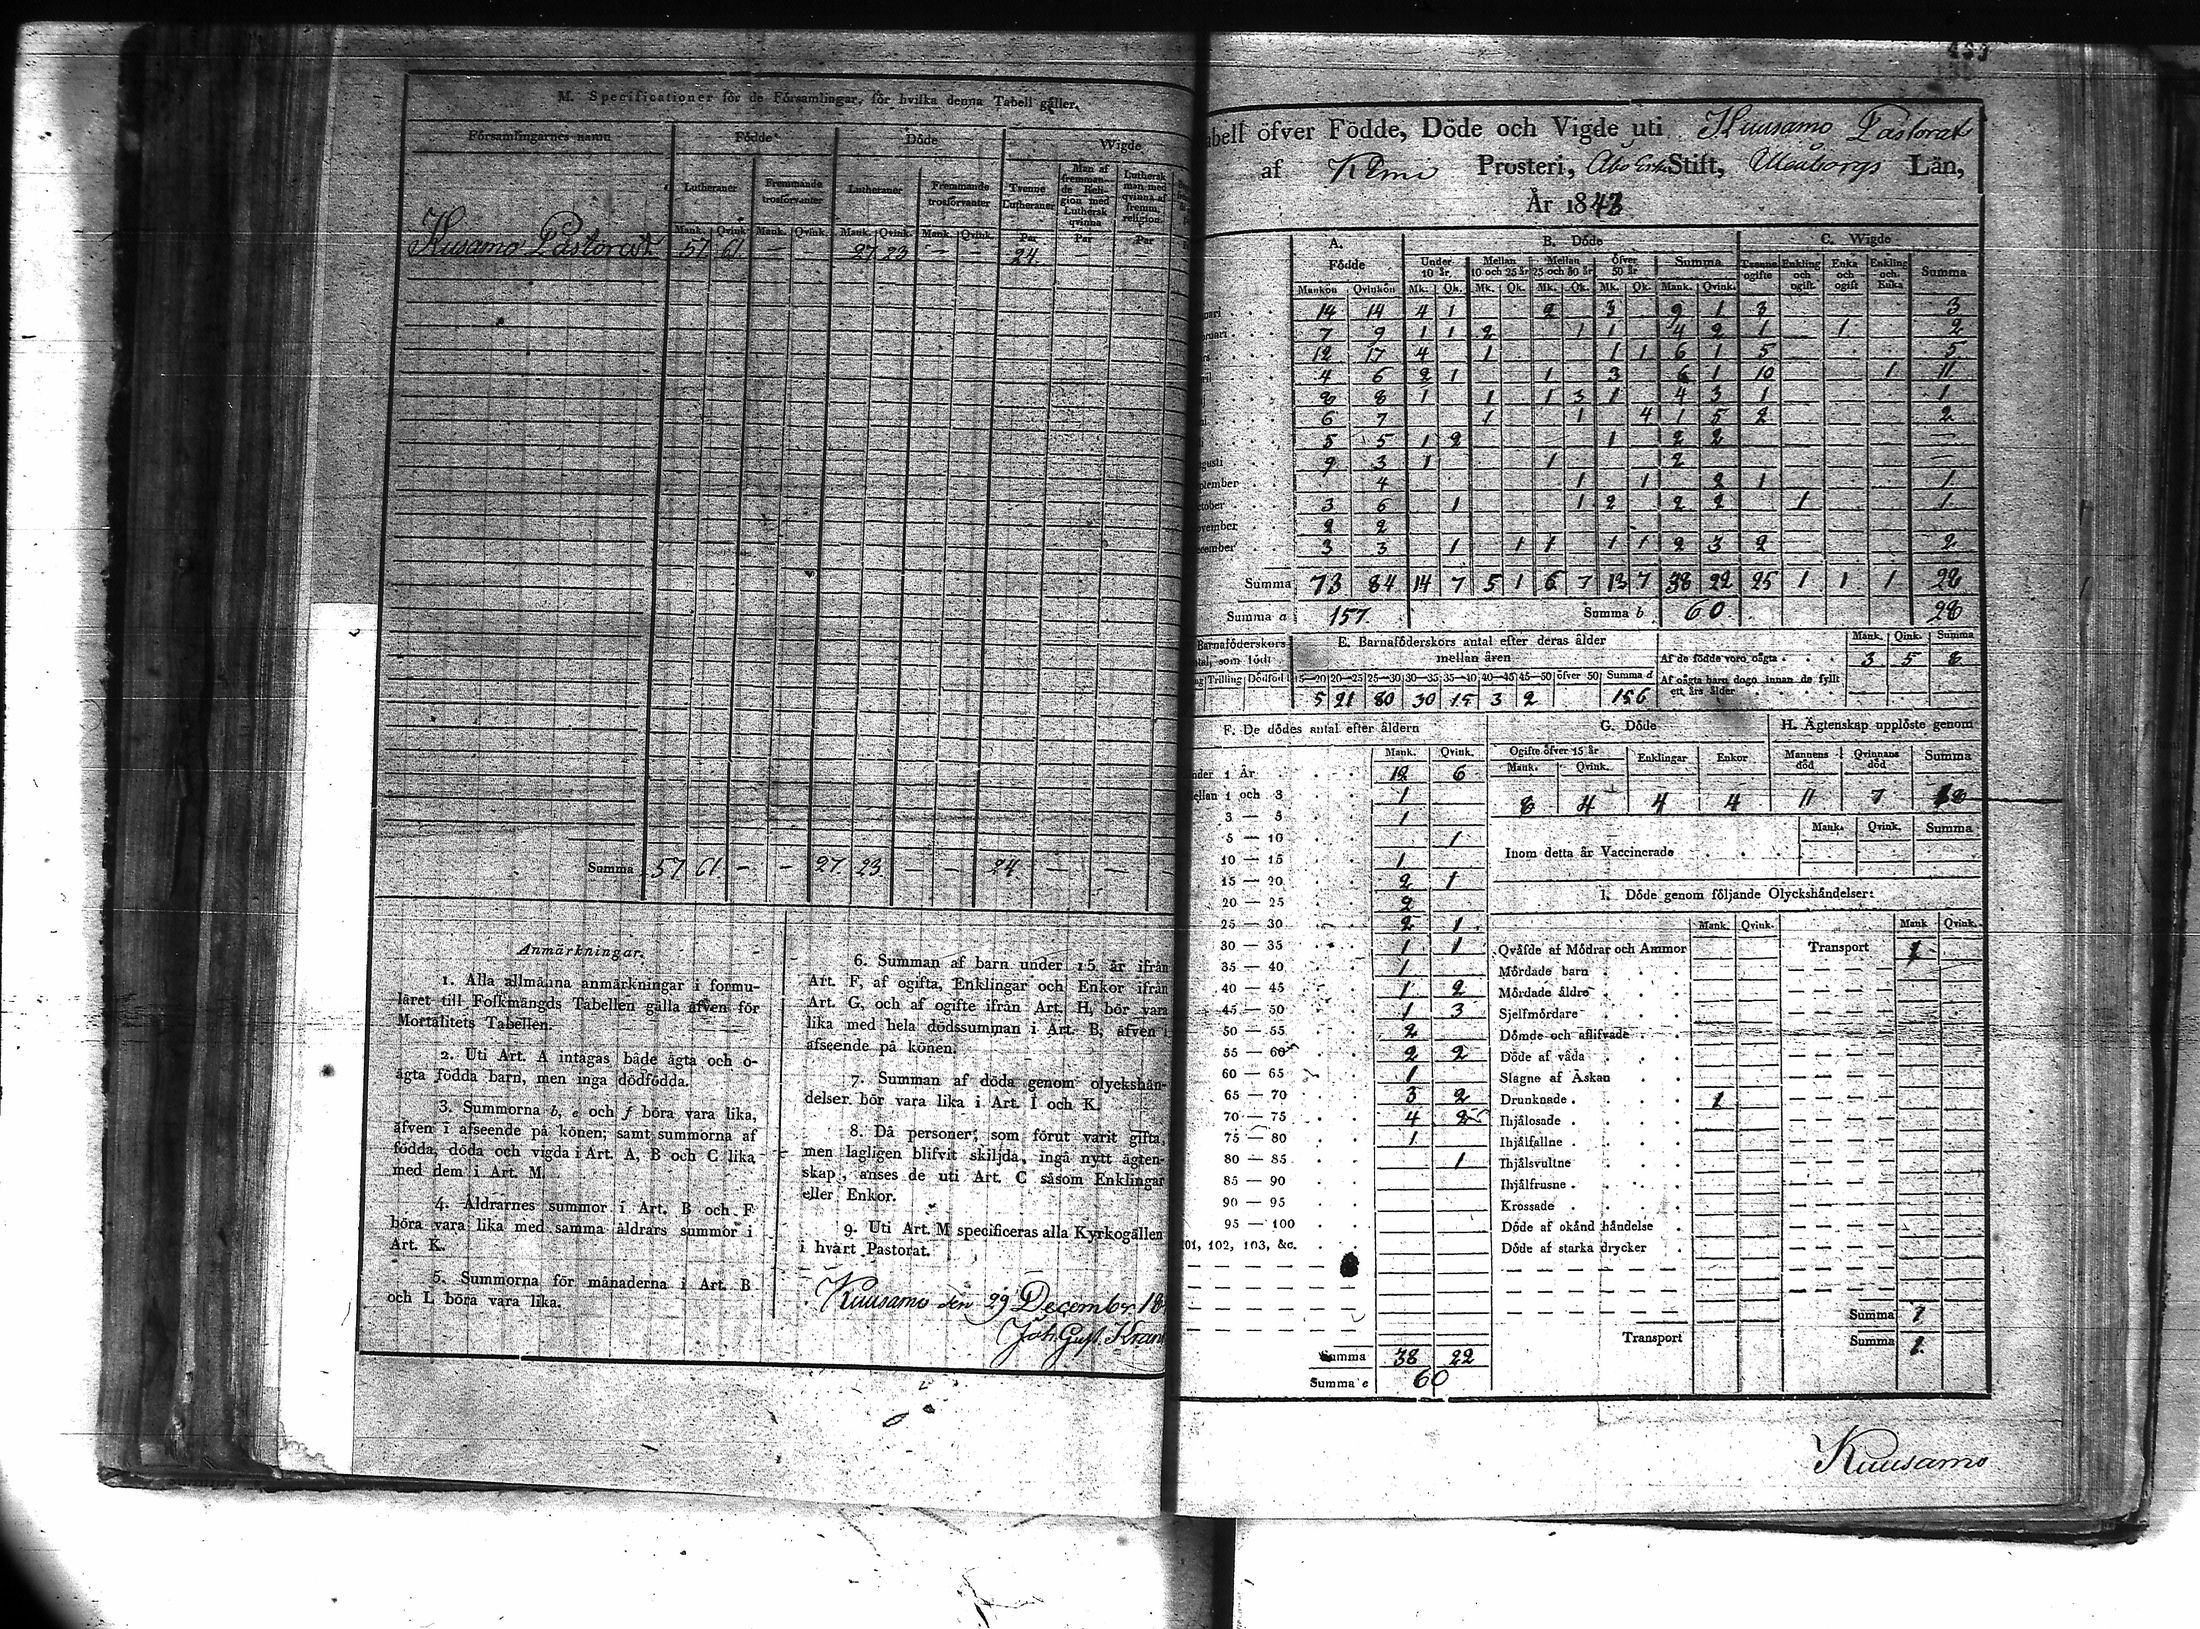 M. Specificationer för de Församlingar, för hvilka denna Tabell gäller.
Församlingarnes namn | Födde | Döde | Wigde
Lutheraner | Fremmande trosförvanter | Lutheraner | Fremmande trosförvanter | Tvenne Lutheraner | Man af fremmande Religion med Luthersk qvinna | Luthersk man med qvinna af fremm. religion
Mank. | Qvink. | Mank. | Qvink. | Mank. | Qvink. | Mank. | Qvink. | Par | Par | Par
Kusamo Pastorat | 57 | 61 | — | — | 27 | 23 | — | — | 24 | — | —
Summa | 57 | 61 | — | — | 27 | 23 | — | — | 24 | — | —
Anmärkningar.
1. Alla allmänna anmärkningar i formu-
läret till Folkmängds Tabellen gälla äfven för
Mortalitets Tabellen.
2. Uti Art. A intagas både ägta och o-
ägta födda barn, men inga dödfödda.
3. Summorna b, e och f böra vara lika,
äfven i afseende på könen; samt summorna af
födda, döda och vigda i Art. A, B och C lika
med dem i Art. M.
4. Åldrarnes summor i Art. B och F
böra vara lika med samma åldrars summor i
Art. K.
5. Summorna för månaderna i Art. B
och L böra vara lika.
6. Summan af barn under 15 år ifrån
Art. F, af ogifta, Enklingar och Enkor ifrån
Art. G, och af ogifte ifrån Art. H, bör vara
lika med hela dödssumman i Art. B, äfven i
afseende på könen.
7. Summan af döda genom olyckshän-
delser bör vara lika i Art. I och K.
8. Då personer, som förut varit gifta,
men lagligen blifvit skiljda, ingå nytt ägten-
skap, anses de uti Art. C såsom Enklingar
eller Enkor.
9. Uti Art. M specificeras alla Kyrkogällen
i hvart Pastorat.
Kuusamo den 29 December 18
Joh. Gust. Kran
abell öfver Födde, Döde och Vigde uti Kuusamo Pastorat
af Kemi Prosteri, Åbo Erke Stift, Uleåborgs Län,
År 1843
A. Födde | B. Döde | C. Wigde
Under 10 år | Mellan 10 och 25 år | Mellan 25 och 50 år | Öfver 50 år | Summa | Tvenne ogifte | Enkling och ogift | Enka och ogift | Enkling och Enka | Summa
Mankön | Qvinkön | Mk. | Qk. | Mk. | Qk. | Mk. | Qk. | Mk. | Qk. | Mank. | Qvink.
uari | 14 | 14 | 4 | 1 | | | 2 | | 3 | | 9 | 1 | 3 | | | | 3
bruari | 7 | 9 | 1 | 1 | 2 | | | 1 | 1 | | 4 | 2 | 1 | | 1 | | 2
12 | 17 | 4 | | 1 | | | | 1 | 1 | 6 | 1 | 5 | | | | 5
ril | 4 | 6 | 2 | 1 | | | 1 | | 3 | | 6 | 1 | 10 | | | 1 | 11
8 | 8 | 1 | | 1 | | 1 | 3 | 1 | | 4 | 3 | 1 | | | | 1
6 | 7 | | | 1 | | | 1 | | 4 | 1 | 5 | 2 | | | | 2
5 | 5 | 1 | 2 | | | | | 1 | | 2 | 2 | | | | | —
gusti | 9 | 3 | 1 | | | | 1 | | | | 2 | | | | | | —
ptember | | 4 | | | | | | 1 | | 1 | | 2 | 1 | | | | 1
ctober | 3 | 6 | | 1 | | | | 1 | 2 | | 2 | 2 | | 1 | | | 1
vember | 2 | 2
ecember | 3 | 3 | | 1 | | 1 | 1 | | 1 | 1 | 2 | 3 | 2 | | | | 2
Summa | 73 | 84 | 14 | 7 | 5 | 1 | 6 | 7 | 13 | 7 | 38 | 22 | 25 | 1 | 1 | 1 | 28
Summa a | 157 | Summa b | 60 | 28
Barnaföderskors
tal, som född
Trilling | Dödfödt
E. Barnaföderskors antal efter deras ålder
mellan åren
15—20 | 20—25 | 25—30 | 30—35 | 35—40 | 40—45 | 45—50 | öfver 50 | Summa d
5 | 21 | 80 | 30 | 15 | 3 | 2 | | 156
Mank. | Qink. | Summa
Af de födde voro oägta | 3 | 5 | 8
Af oägta barn dogo innan de fyllt
ett års ålder
F. De dödes antal efter åldern
Mank. | Qvink.
nder 1 År | 12 | 6
ellan 1 och 3 | 1
3 — 5 | 1
5 — 10 | | 1
10 — 15 | 1
15 — 20 | 2 | 1
20 — 25 | 2
25 — 30 | 2 | 1
30 — 35 | 1 | 1
35 — 40 | 1
40 — 45 | 1 | 2
45 — 50 | 1 | 3
50 — 55 | 2
55 — 60 | 2 | 2
60 — 65 | 1
65 — 70 | 3 | 2
70 — 75 | 4 | 2
75 — 80 | 1
80 — 85 | | 1
85 — 90
90 — 95
95 — 100
101, 102, 103, &c.
Summa | 38 | 22
Summa e | 60
G. Döde
Ogifte öfver 15 år | Enklingar | Enkor
Mank. | Qvink.
8 | 4 | 4 | 4
H. Ägtenskap upplöste genom
Mannens död | Qvinnans död | Summa
11 | 7 | 18
Mank. | Qvink. | Summa
Inom detta år Vaccinerade
I. Döde genom följande Olyckshändelser:
Mank. | Qvink. | Mank | Qvink.
Qväfde af Mödrar och Ammor | Transport | 1
Mördade barn
Mördade äldre
Sjelfmördare
Dömde och aflifvade
Döde af våda
Slagne af Åskan
Drunknade | 1
Ihjälosade
Ihjälfallne
Ihjälsvultne
Ihjälfrusne
Krossade
Döde af okänd händelse
Döde af starka drycker
Summa | 1
Transport | Summa | 1
Kuusamo